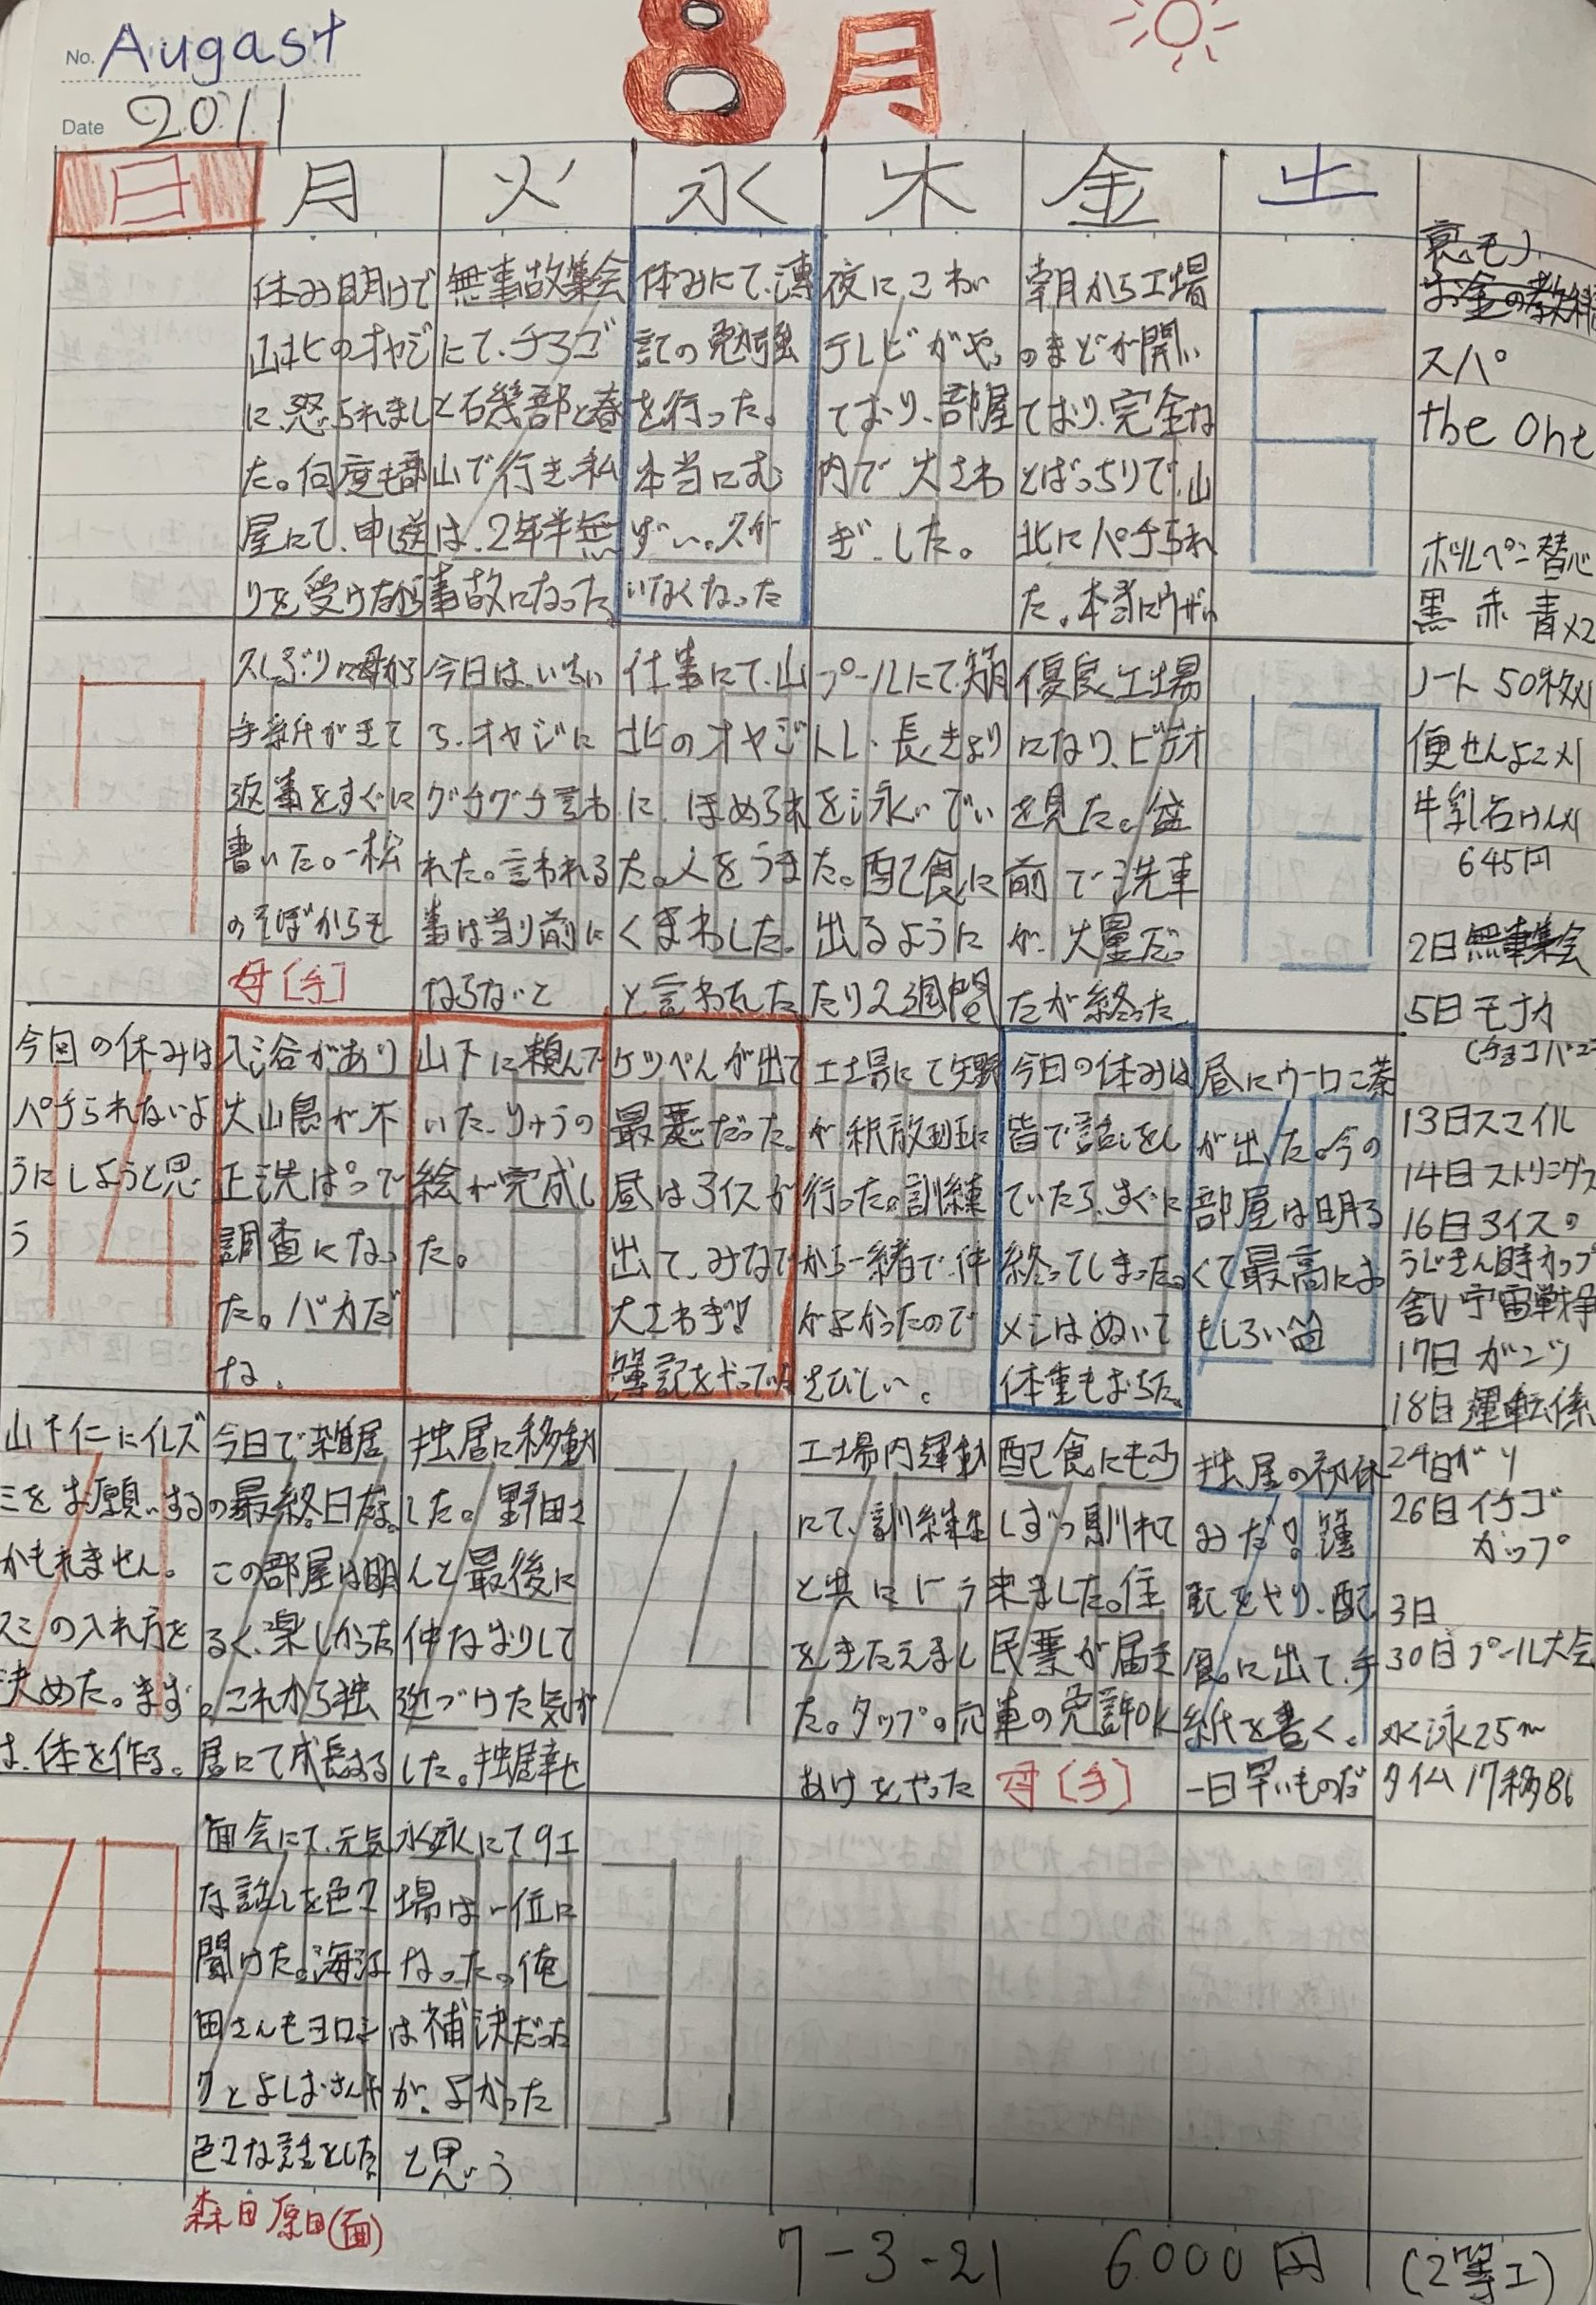 No. Augast
8月
Date 2011
日 月 火 水 木 金 土
休み明けで
山北のオヤジ
に、怒られまし
た。何度も部
屋にて、申し送
りを受けながら
無事故集会
にて、チョゴ
と石磯部と春
山で行き私
は、2年半無
事故になった
休みにて、漢
記の勉強
を行った。
本当にむ
ずい。スガ
いなくなった
夜にこわい
テレビがやっ
ており、部屋
内で大さわ
ぎした。
朝から工場
のまどが開い
ており、完全な
とばっちりで、山
北にパチられ
た。本当にウザい
6
裏モノ
スパ
the One
ボールペン替心
黒 赤 青×2
7
久しぶりに母から
手紙がきて
返事をすぐに
書いた。一松
のそばからも
母〔手〕
今日は、いちい
ち、オヤジに
グチグチ言わ
れた。言われる
事は当り前に
ならないと
仕事にて、山
北のオヤジ
に、ほめられ
た。人をうま
くまわした。
と言われた
プールにて、筋
トレ、長きょり
を泳いでい
た。配食に
出るように
たり2週間
優良工場
になり、ビデオ
を見た。盆
前で洗車
が、大量だっ
たが終った
13
ノート 50枚×1
便せんよこ×1
牛乳石けん×1
645円
2日 無事集会
5日 モナカ
(チョコバニ
今回の休みは
パチられないよ
うにしようと思
う
14
入浴があり
大山島が不
正洗ぱつで
調査になっ
た。バカだ
な。
山下に頼んで
いた、りゅうの
絵が完成し
た。
ケツペんが出て
最悪だった。
昼は3イスが
出て、みなで
大さわぎ!!
簿記をやっていた
工場にて矢野
が釈放前に
行った。訓練
から一緒で、仲
がよかったので
さびしい。
今日の休みは
皆で話しをし
ていたら、すぐに
終ってしまった。
メシはぬいて
体重もおちた。
昼にウーロン茶
が出た。今の
部屋は明る
くて最高にお
もしろい
20
13日スマイル
14日 ストリングス
16日 3イスの
うじきん時カップ
舎い 宇宙戦争
17日 ガンツ
18日 運転係
山下仁にイレズ
ミをお願いする
かもれません。
スミの入れ方を
決めた。まず
は、体を作る。
21
今日で雑居
の最終日だ。
この部屋は明
るく、楽しかった
。これから独
居にて成長する
独居に移動
した。野田さ
んと最後に
仲なおりして
近づけた気が
した。独居幸せ
24
工場内運動
にて、訓練生
と共にドウ
をきたえまし
た。タップ。穴
あけをやった
配食にも少
しずつ馴れて
来ました。住
民票が届き
車の免許OK
母〔手〕
独居の初休
みだ!簿
記をやり、配
食に出て、手
紙を書く。
一日早いものだ
27
24日ガリ
26日 イチゴ
カップ
3日
30日 プール大会
水泳25m
タイム 17秒86
28
面会にて、元気
な話しを色々
聞けた。海江
田さんもヨロシ
クとよしおさんや
色々な話をした
森田 原田(面)
水泳にて9工
場は一位に
なった。俺
は補決だった
が、よかった
と思う
31
7-3-21 6000円 (2等工)